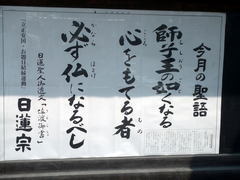 今月の聖語
師子王の如くなる
心をもてる者
必ず仏になるべし
日蓮聖人御遺文『佐渡御書』
「立正安国・お題目結縁運動」
日蓮宗